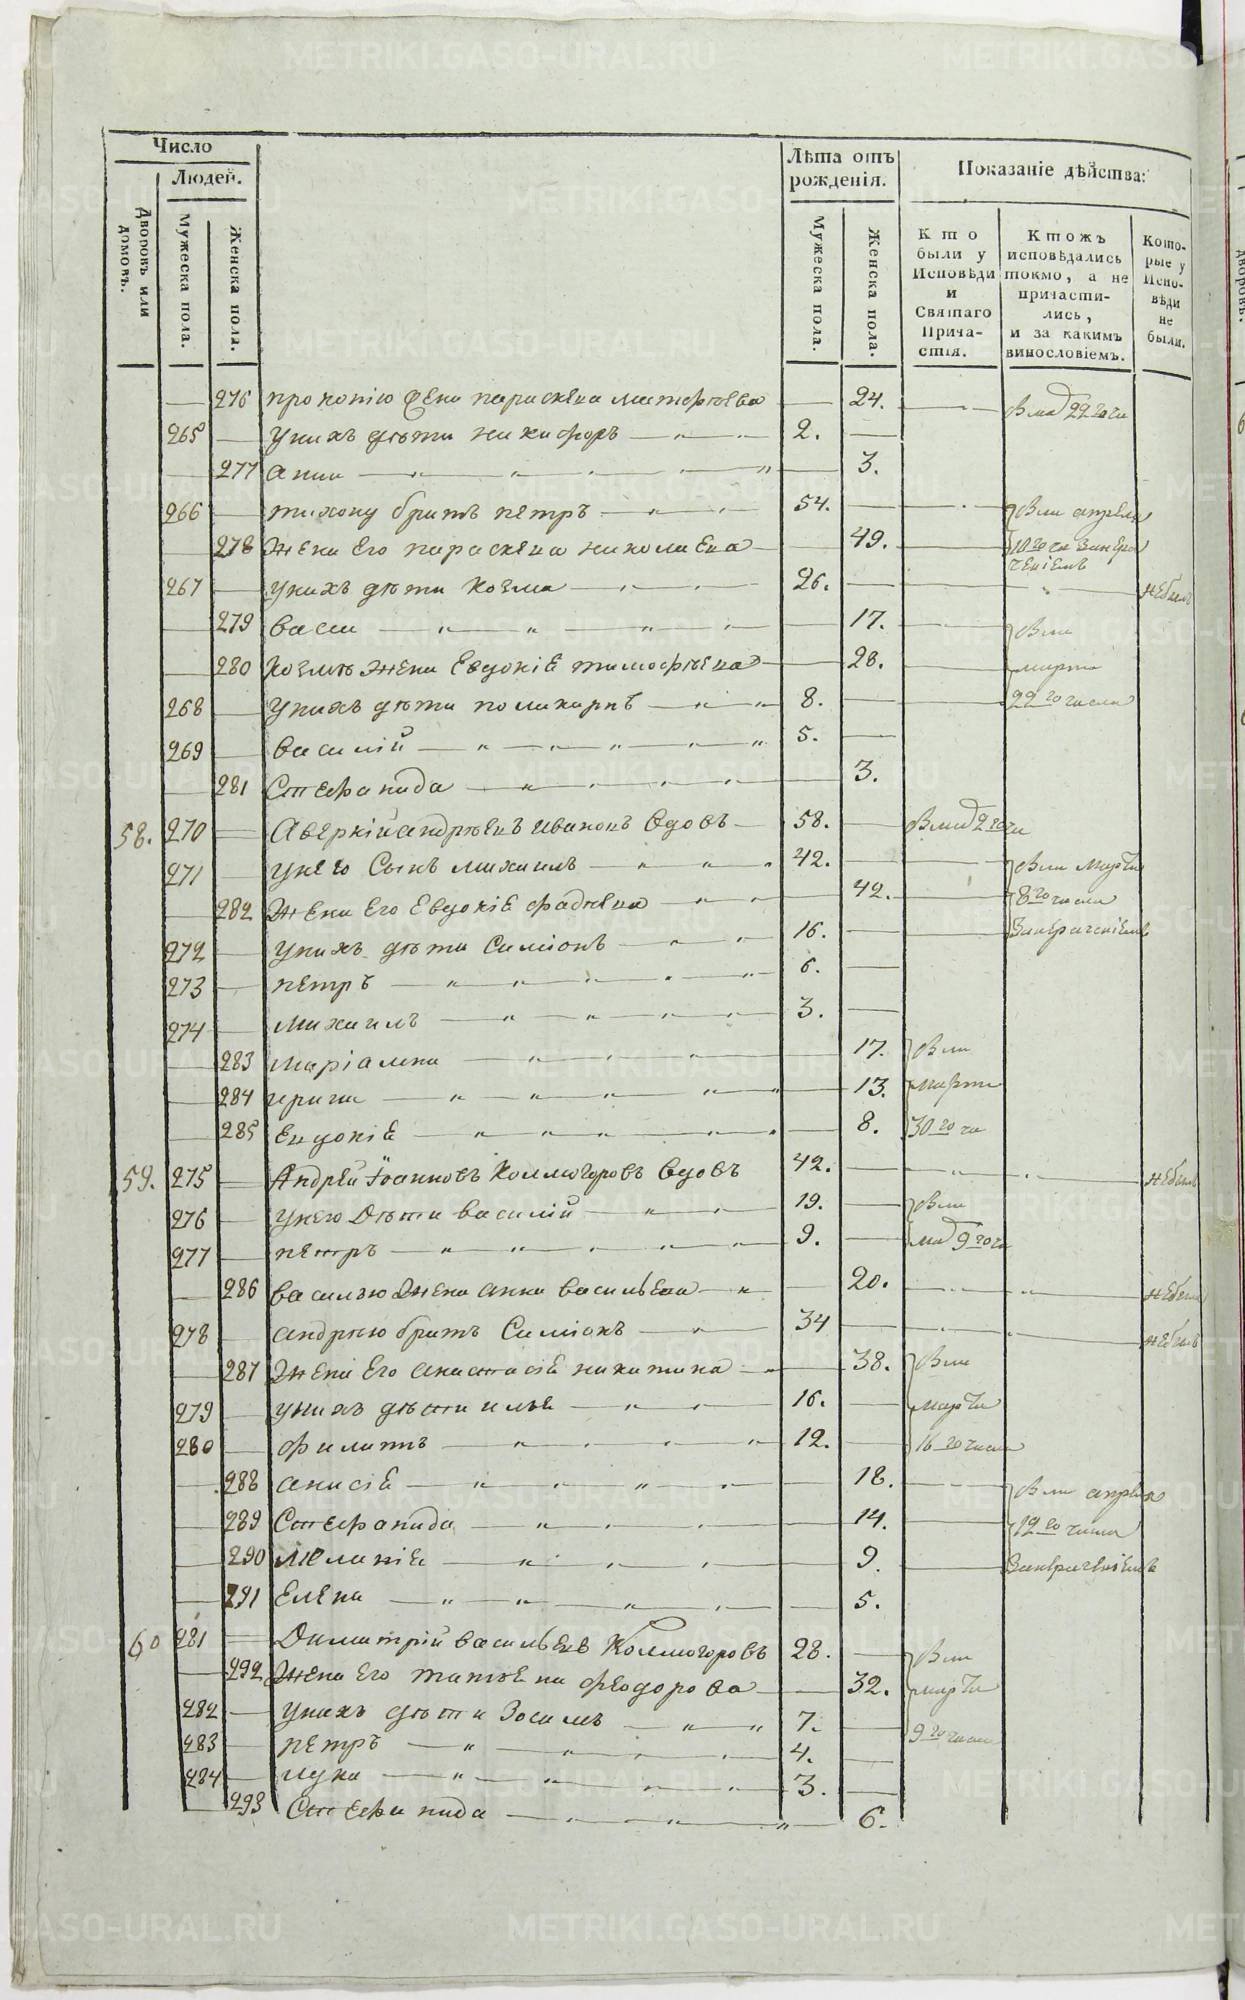 Число
Людей.
Дворовъ или домовъ.
Мужеска пола.
Женска пола.
Лѣта отъ рожденія.
Мужеска пола.
Женска пола.
Показаніе дѣйства:
Кто были у Исповѣди и Святаго Причастія.
Ктожъ исповѣдались токмо, а не причастились, и за какимъ винословіемъ.
Которые у Исповѣди не были.
276 прокопію жена параскева матфѣева 24. 22 го чи
265 унихъ дѣти никифоръ 2.
277 анна 3.
266 тихону братъ петръ 54. Вми апреля
278 Жена Его параскева николаева 49. 10 го чи
267 унихъ дѣти Козма 26. небылъ
279 васса 17. Вми
280 Козмѣ жена Евдокіѣ тимофѣева 28. марта
268 унихъ дѣти поликарпъ 8. 22 го числа
269 василій 5.
281 Стефанида 3.
58. 270 Аверкій андрѣевъ Ивановъ вдовъ 58. 2 го чи
271 унего Сынъ михаилъ 42. Вми марта
282 Жена Его Евдокіѣ фадѣева 42. 8 го числа
272 унихъ дѣти Симіонъ 16.
273 петръ 6.
274 михаилъ 3.
283 маріамна 17. Вми
284 ирина 13. марта
285 Евдокіѣ 8. 30 го чи
59. 275 Андрей Іоанновъ Колмогоровъ вдовъ 42. небылъ
276 унего Дѣти василій 19. Вми
277 петръ 9. маѣ 9 го чи
286 василью жена анна васильева 20. небыла
278 андрѣю братъ Симіонъ 34 небылъ
287 Жена Его анастасіѣ никитина 38. Вми
279 унихъ дѣти илья 16. марта
280 филатъ 12. 16 го числа
288 анисіѣ 18. Вми апреля
289 Стефанида 14. 12 го числа
290 Меланіѣ 9.
291 Елена 5.
60 281 Димитрій васильевъ Колмогоровъ 28. Вми
292 Жена Его татіена феодорова 32. марта
282 унихъ дѣти Зосимъ 7. 9 го числа
283 петръ 4.
284 лука 3.
293 Стефанида 6.
METRIKI.GASO-URAL.RU